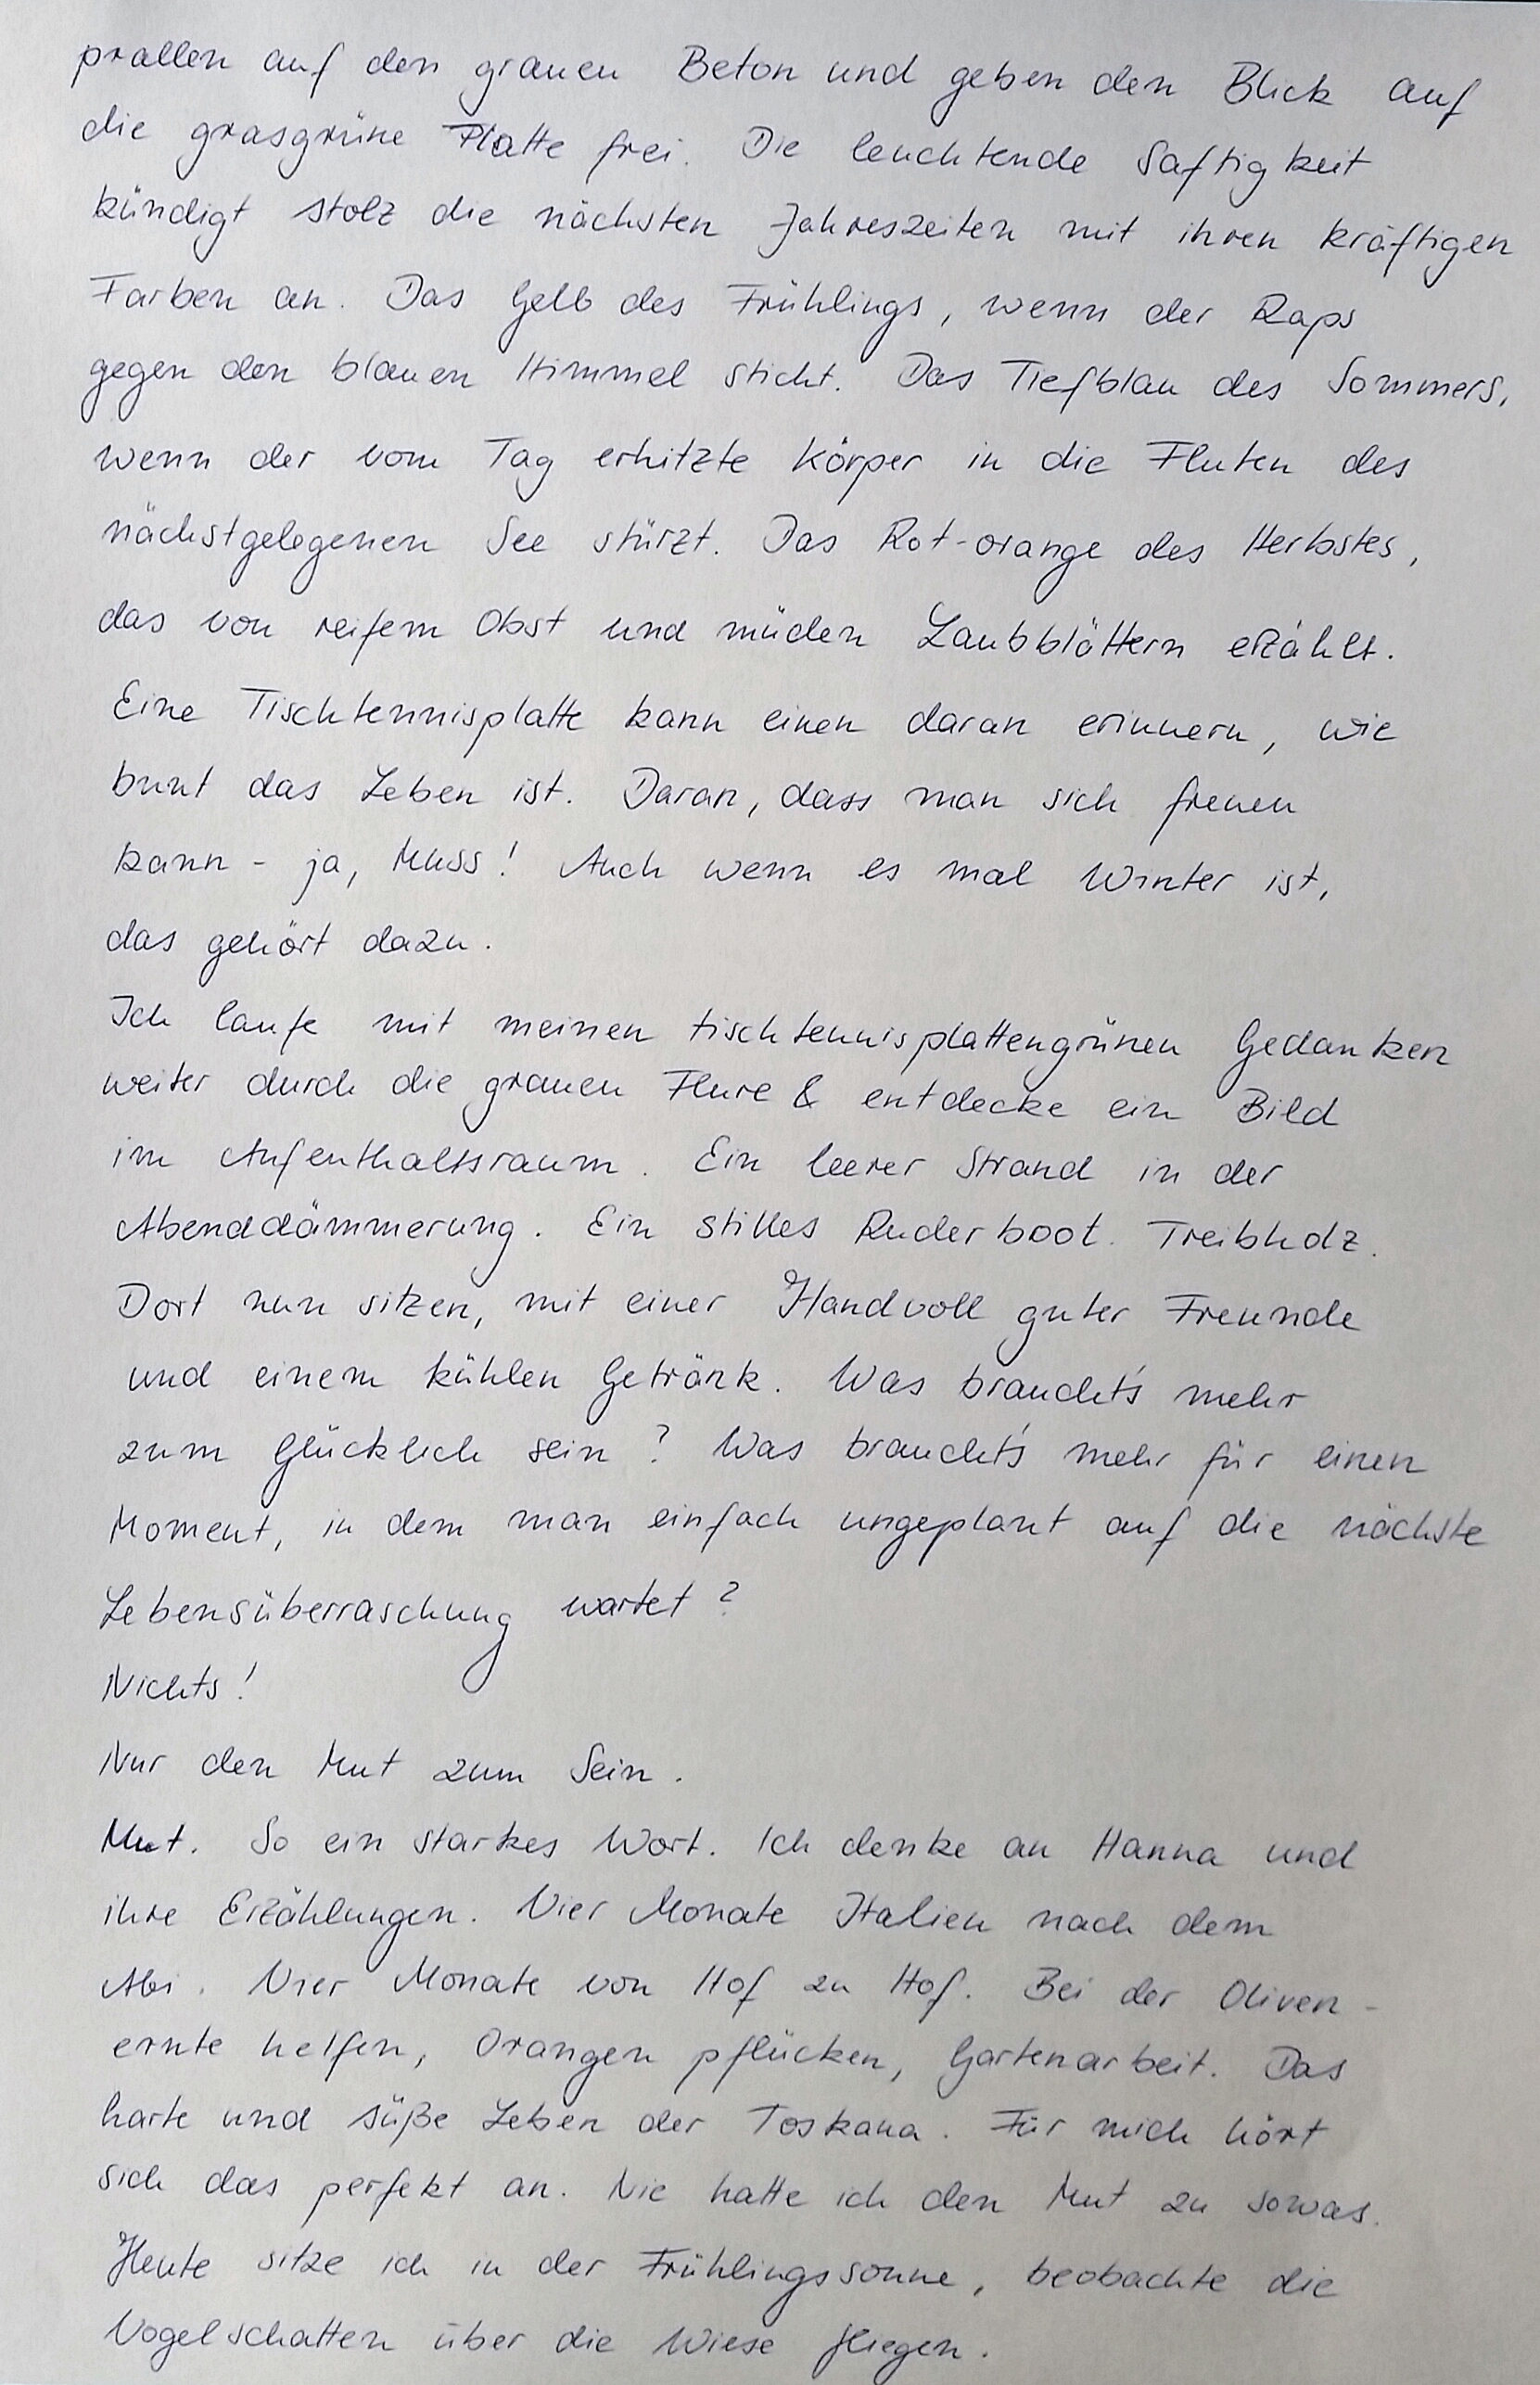 prallen auf den grauen Beton und geben den Blick auf
die grasgrüne Platte frei. Die leuchtende Saftigkeit
kündigt stolz die nächsten Jahreszeiten mit ihren kräftigen
Farben an. Das Gelb des Frühlings, wenn der Raps
gegen den blauen Himmel sticht. Das Tiefblau des Sommers,
wenn der vom Tag erhitzte Körper in die Fluten des
nächstgelegenen See stürzt. Das Rot-orange des Herbstes,
das von reifem Obst und müden Laubblättern erzählt.
Eine Tischtennisplatte kann einen daran erinnern, wie
bunt das Leben ist. Daran, dass man sich freuen
kann - ja, Muss! Auch wenn es mal Winter ist,
das gehört dazu.
Ich laufe mit meinen tischtennisplattengrünen Gedanken
weiter durch die grauen Flure & entdecke ein Bild
im Aufenthaltsraum. Ein leerer Strand in der
Abenddämmerung. Ein stilles Ruderboot. Treibholz.
Dort nun sitzen, mit einer Handvoll guter Freunde
und einem kühlen Getränk. Was braucht's mehr
zum Glücklich sein? Was braucht's mehr für einen
Moment, in dem man einfach ungeplant auf die nächste
Lebensüberraschung wartet?
Nichts!
Nur den Mut zum Sein.
Mut. So ein starkes Wort. Ich denke an Hanna und
ihre Erzählungen. Vier Monate Italien nach dem
Abi. Vier Monate von Hof zu Hof. Bei der Oliven-
ernte helfen, Orangen pflücken, Gartenarbeit. Das
harte und süße Leben der Toskana. Für mich hört
sich das perfekt an. Nie hatte ich den Mut zu sowas.
Heute sitze ich in der Frühlingssonne, beobachte die
Vogelschatten über die Wiese fliegen.